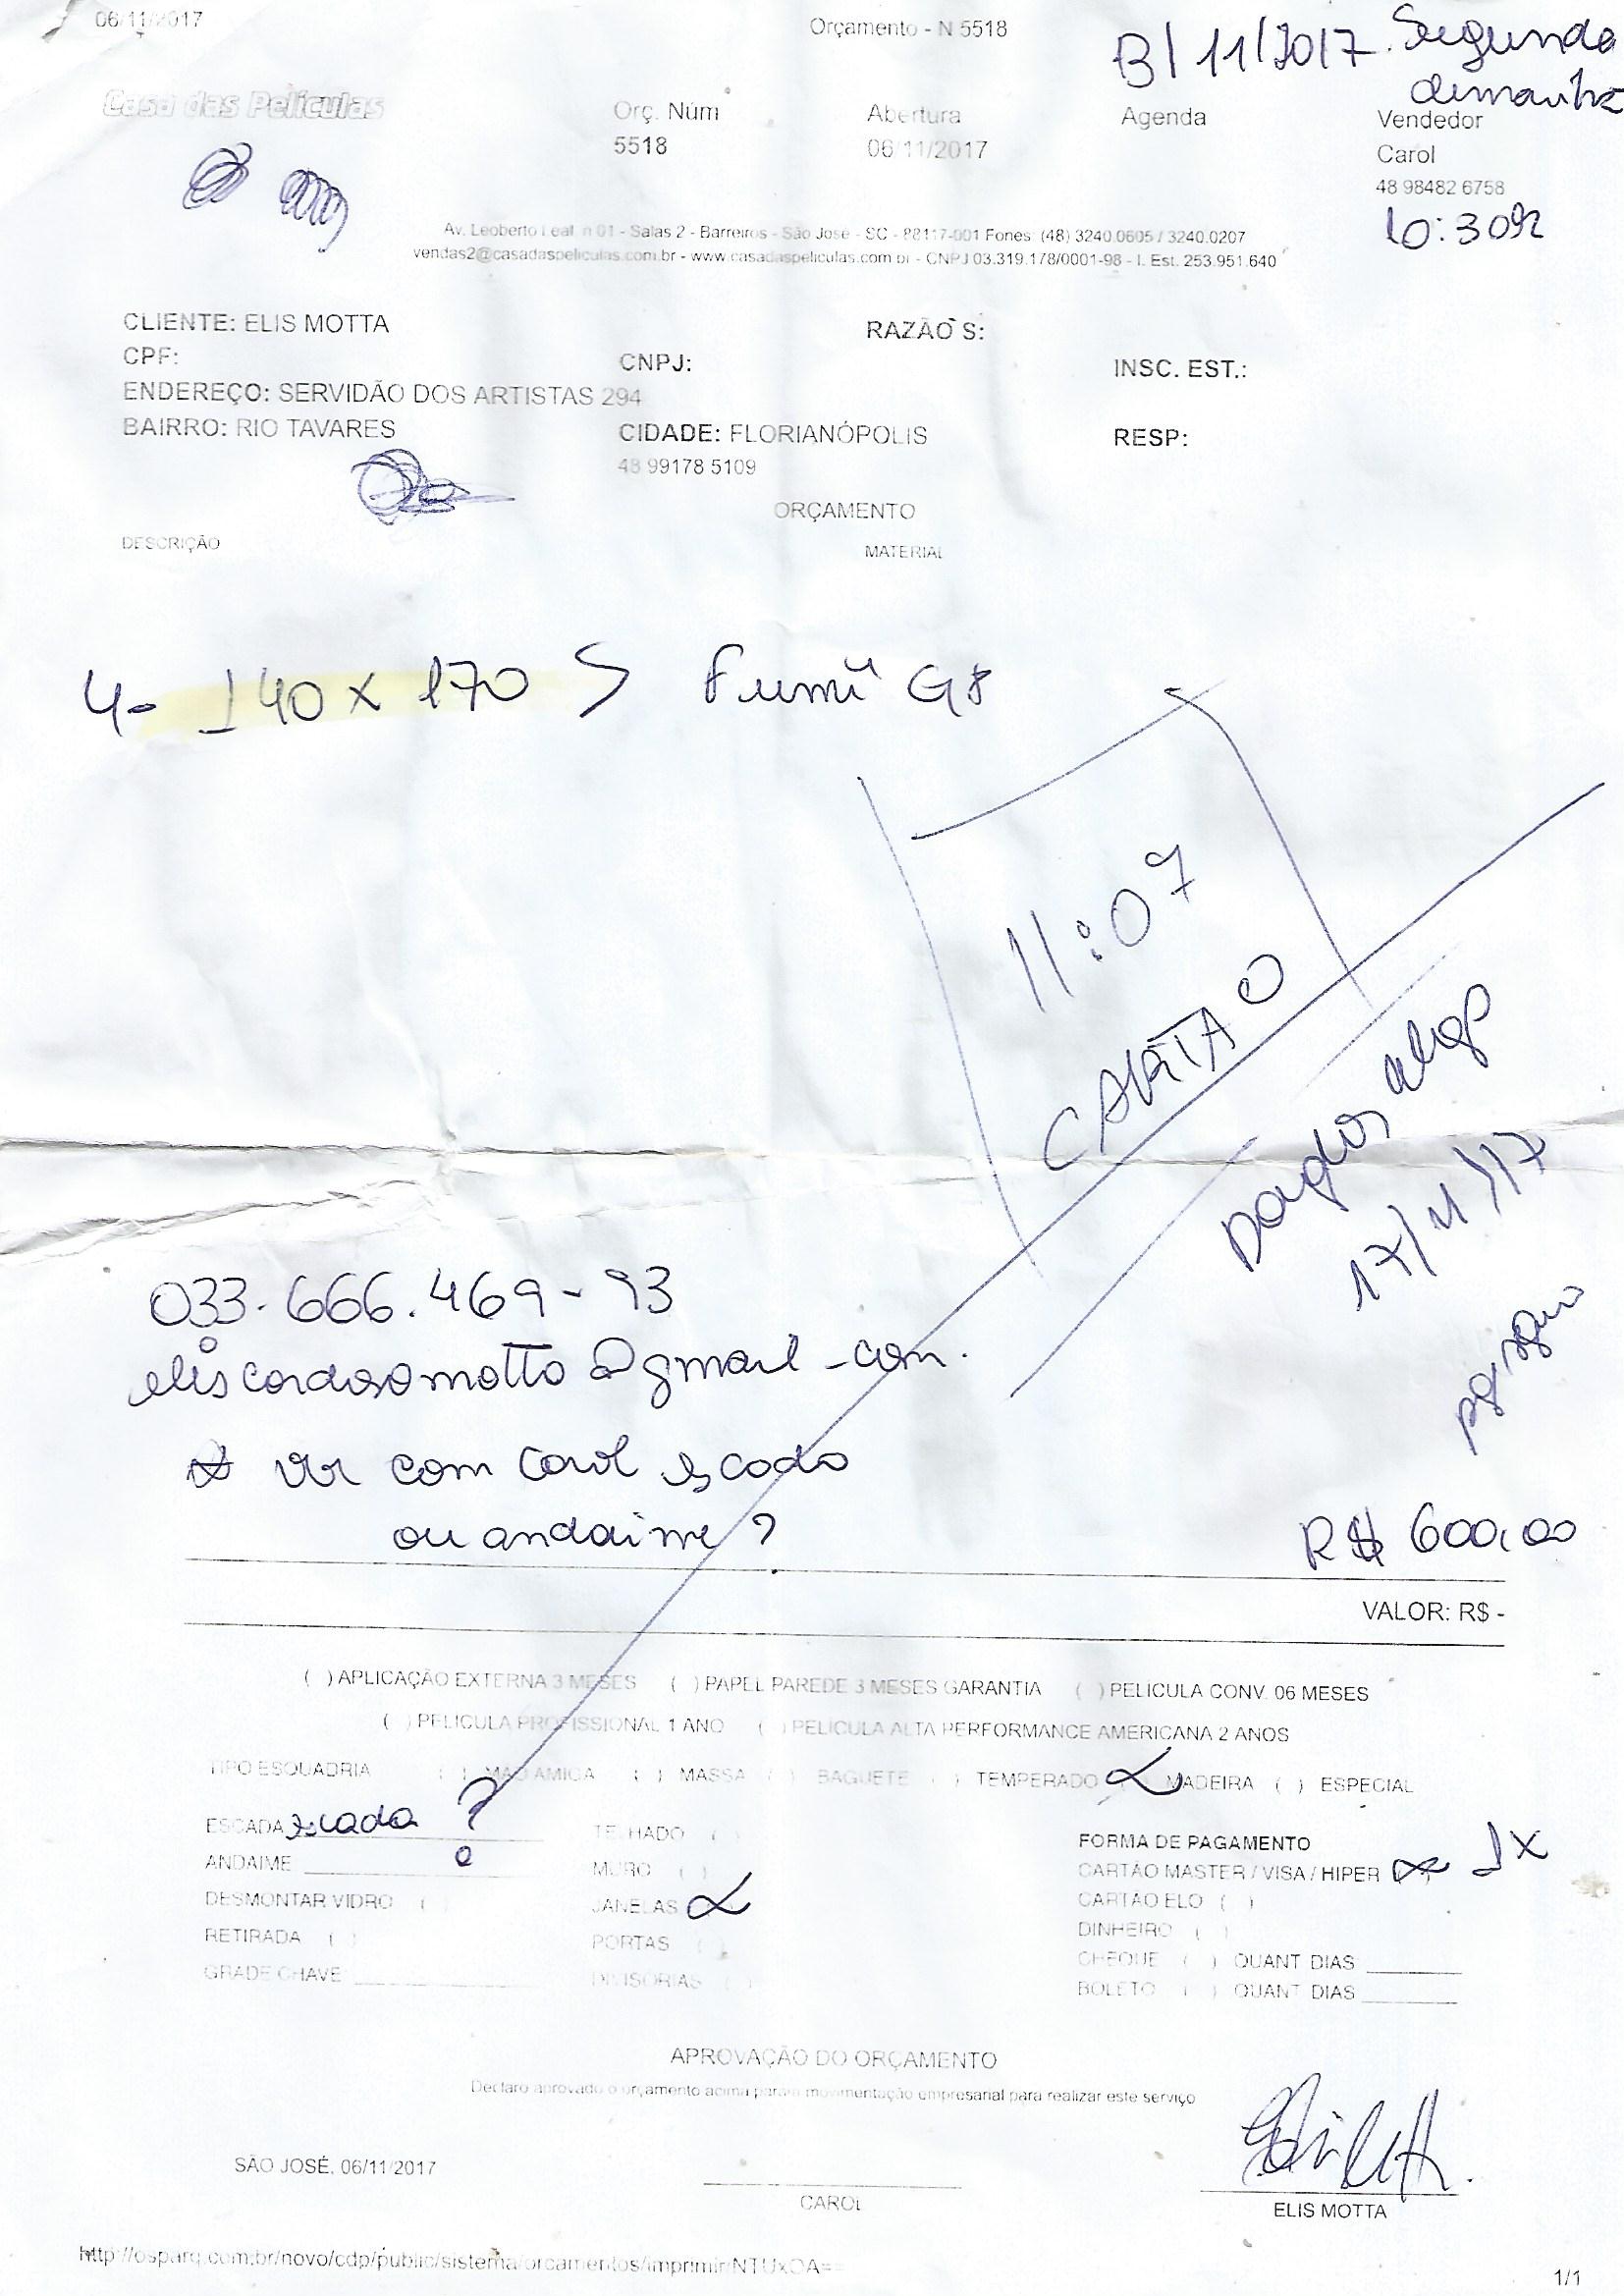 06/11/2017 Orçamento - N 5518
13/11/2017. Segunda
demanhã
Casa das Películas Orç. Núm Abertura Agenda Vendedor
5518 06/11/2017 Carol
48 98482 6758
10:30
Av. Leoberto Leal, n 01 - Salas 2 - Barreiros - São José - SC - 88117-001 Fones: (48) 3240.0605 / 3240.0207
vendas2@casadaspeliculas.com.br - www.casadaspeliculas.com.br - CNPJ 03.319.178/0001-98 - I. Est. 253.951.640
CLIENTE: ELIS MOTTA RAZÃO S:
CPF: CNPJ: INSC. EST.:
ENDEREÇO: SERVIDÃO DOS ARTISTAS 294
BAIRRO: RIO TAVARES CIDADE: FLORIANÓPOLIS RESP:
48 99178 5109
ORÇAMENTO
DESCRIÇÃO MATERIAL
4- 140 x 170 Fumê G8
11:07
CARTAO
17/11/17
033.666.469-93
eliscardosomotta@gmail.com.
ver com Carol escada
ou andaime?
R$ 600,00
VALOR: R$ -
( ) APLICAÇÃO EXTERNA 3 MESES ( ) PAPEL PAREDE 3 MESES GARANTIA ( ) PELICULA CONV. 06 MESES
( ) PELICULA PROFISSIONAL 1 ANO ( ) PELICULA ALTA PERFORMANCE AMERICANA 2 ANOS
TIPO ESQUADRIA ( ) MAO AMIGA ( ) MASSA ( ) BAGUETE ( ) TEMPERADO MADEIRA ( ) ESPECIAL
ESCADA escada ? TELHADO ( ) FORMA DE PAGAMENTO
ANDAIME MURO ( ) CARTÃO MASTER / VISA / HIPER 1x
DESMONTAR VIDRO ( ) JANELAS CARTAO ELO ( )
RETIRADA ( ) PORTAS ( ) DINHEIRO ( )
GRADE CHAVE DIVISORIAS ( ) CHEQUE ( ) QUANT DIAS
BOLETO ( ) QUANT DIAS
APROVAÇÃO DO ORÇAMENTO
Declaro aprovado o orçamento acima para movimentação empresarial para realizar este serviço
SÃO JOSÉ, 06/11/2017
CAROL ELIS MOTTA
http://osparq.com.br/novo/cdp/public/sistema/orcamentos/imprimir/NTUxOA== 1/1